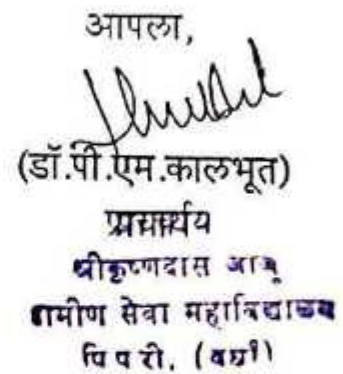 आपला,
(डॉ.पी.एम.कालभूत)
प्राचार्य
श्रीकृष्णदास जाजू
ग्रामीण सेवा महाविद्यालय
पिपरी, (वर्धा)